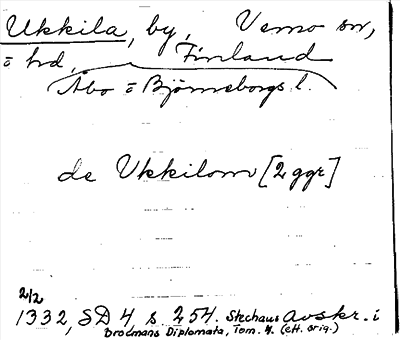 Ukkila, by, Vemo sn,
o hd, Finland
Åbo o Björneborgs l.
de Vkkilom [2 ggr]
2/2
1332, SD 4 s. 254. Stechaus Avskr. i
Brocmans Diplomata, Tom. 4. (ett. orig.)